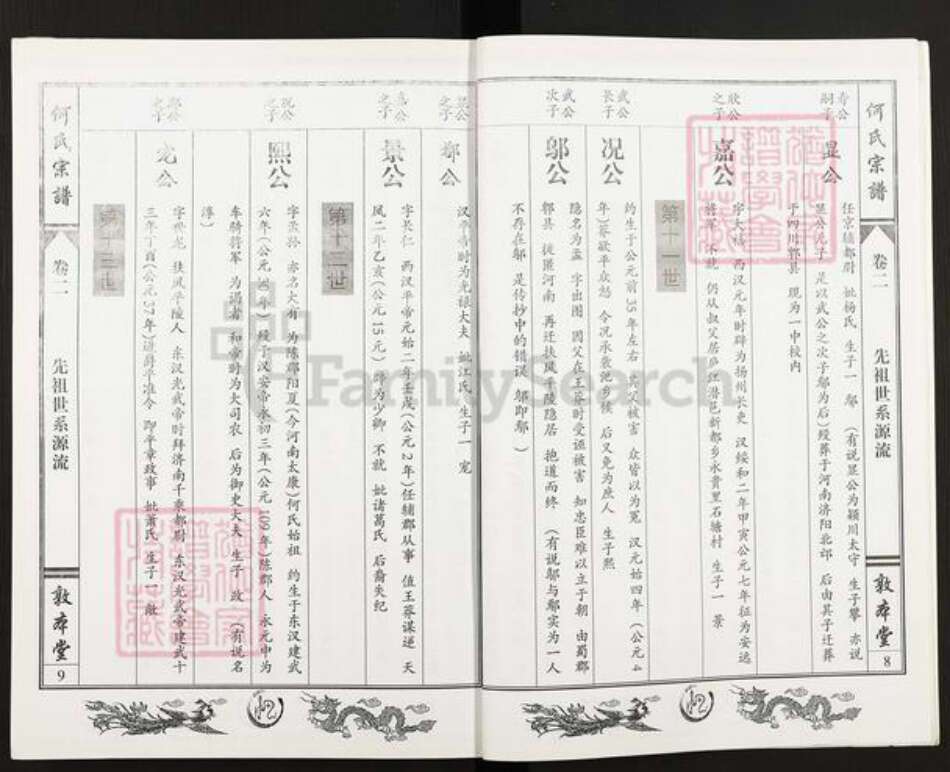 何氏宗譜
卷二
先祖世系源流
敦本堂
8
寿公
嗣子
显公
任京辅都尉 妣杨氏 生子一 鄢 (有说显公为颍川太守 生子攀 亦说
显公无子 是以武公之次子邬为后)授葬于河南济阳北邙 后由其子迁葬
于四川郫县 现为一中校内
欣公
之子
嘉公
字大福 西汉元年时辟为扬州长史 汉绥和二年甲寅公元七年征为安远
将军 不就 仍从叔父居庐江潜邑新都乡永贵里石塘村 生子一 景
第十一世
武公
长子
况公
约生于公元前35年左右 其父被害 众皆以为冤 汉元始四年 (公元4
年)莽欲平众怒 令况承袭氾乡候 后又免为庶人 生子熙
武公
次子
邬公
隐名为孟 字出图 因父在王莽时受诬被害 知忠臣难以立于朝 由蜀郡
郫县 徙匿河南 再迁扶风平陵隐居 抱道而终 (有说邬与鄢实为一人
不存在邬 是传抄中的错误 邬即鄢 )
显公
之子
鄢公
汉平帝时为光禄大夫 妣江氏 生子一 宠
嘉公
之子
景公
字长仁 西汉平帝元始二年壬戌(公元2年)任辅郡从事 值王莽谋逆 天
凤二年乙亥(公元15元)辟为少卿 不就 妣诸葛氏 后裔失纪
第十二世
况公
之子
熙公
字孟孙 亦名大有 为陈郡阳夏(今河南太康)何氏始祖 约生于东汉建武
六年(公元30年)授于汉安帝永初三年(公元109年)陈郡人 永元中为
车骑将军 为谒者 和帝时为大司农 后为御史大夫 生子 政 (有说名
淳)
鄢公
之子
宠公
扶风平陵人 东汉光武帝时拜济南千乘都尉 东汉光武帝建武十
三年丁酉(公元37年)
平准令 即平章政事 妣萧氏 生子一 敞
第十三世
何氏宗譜
卷二
先祖世系源流
敦本堂
9
FamilySearch